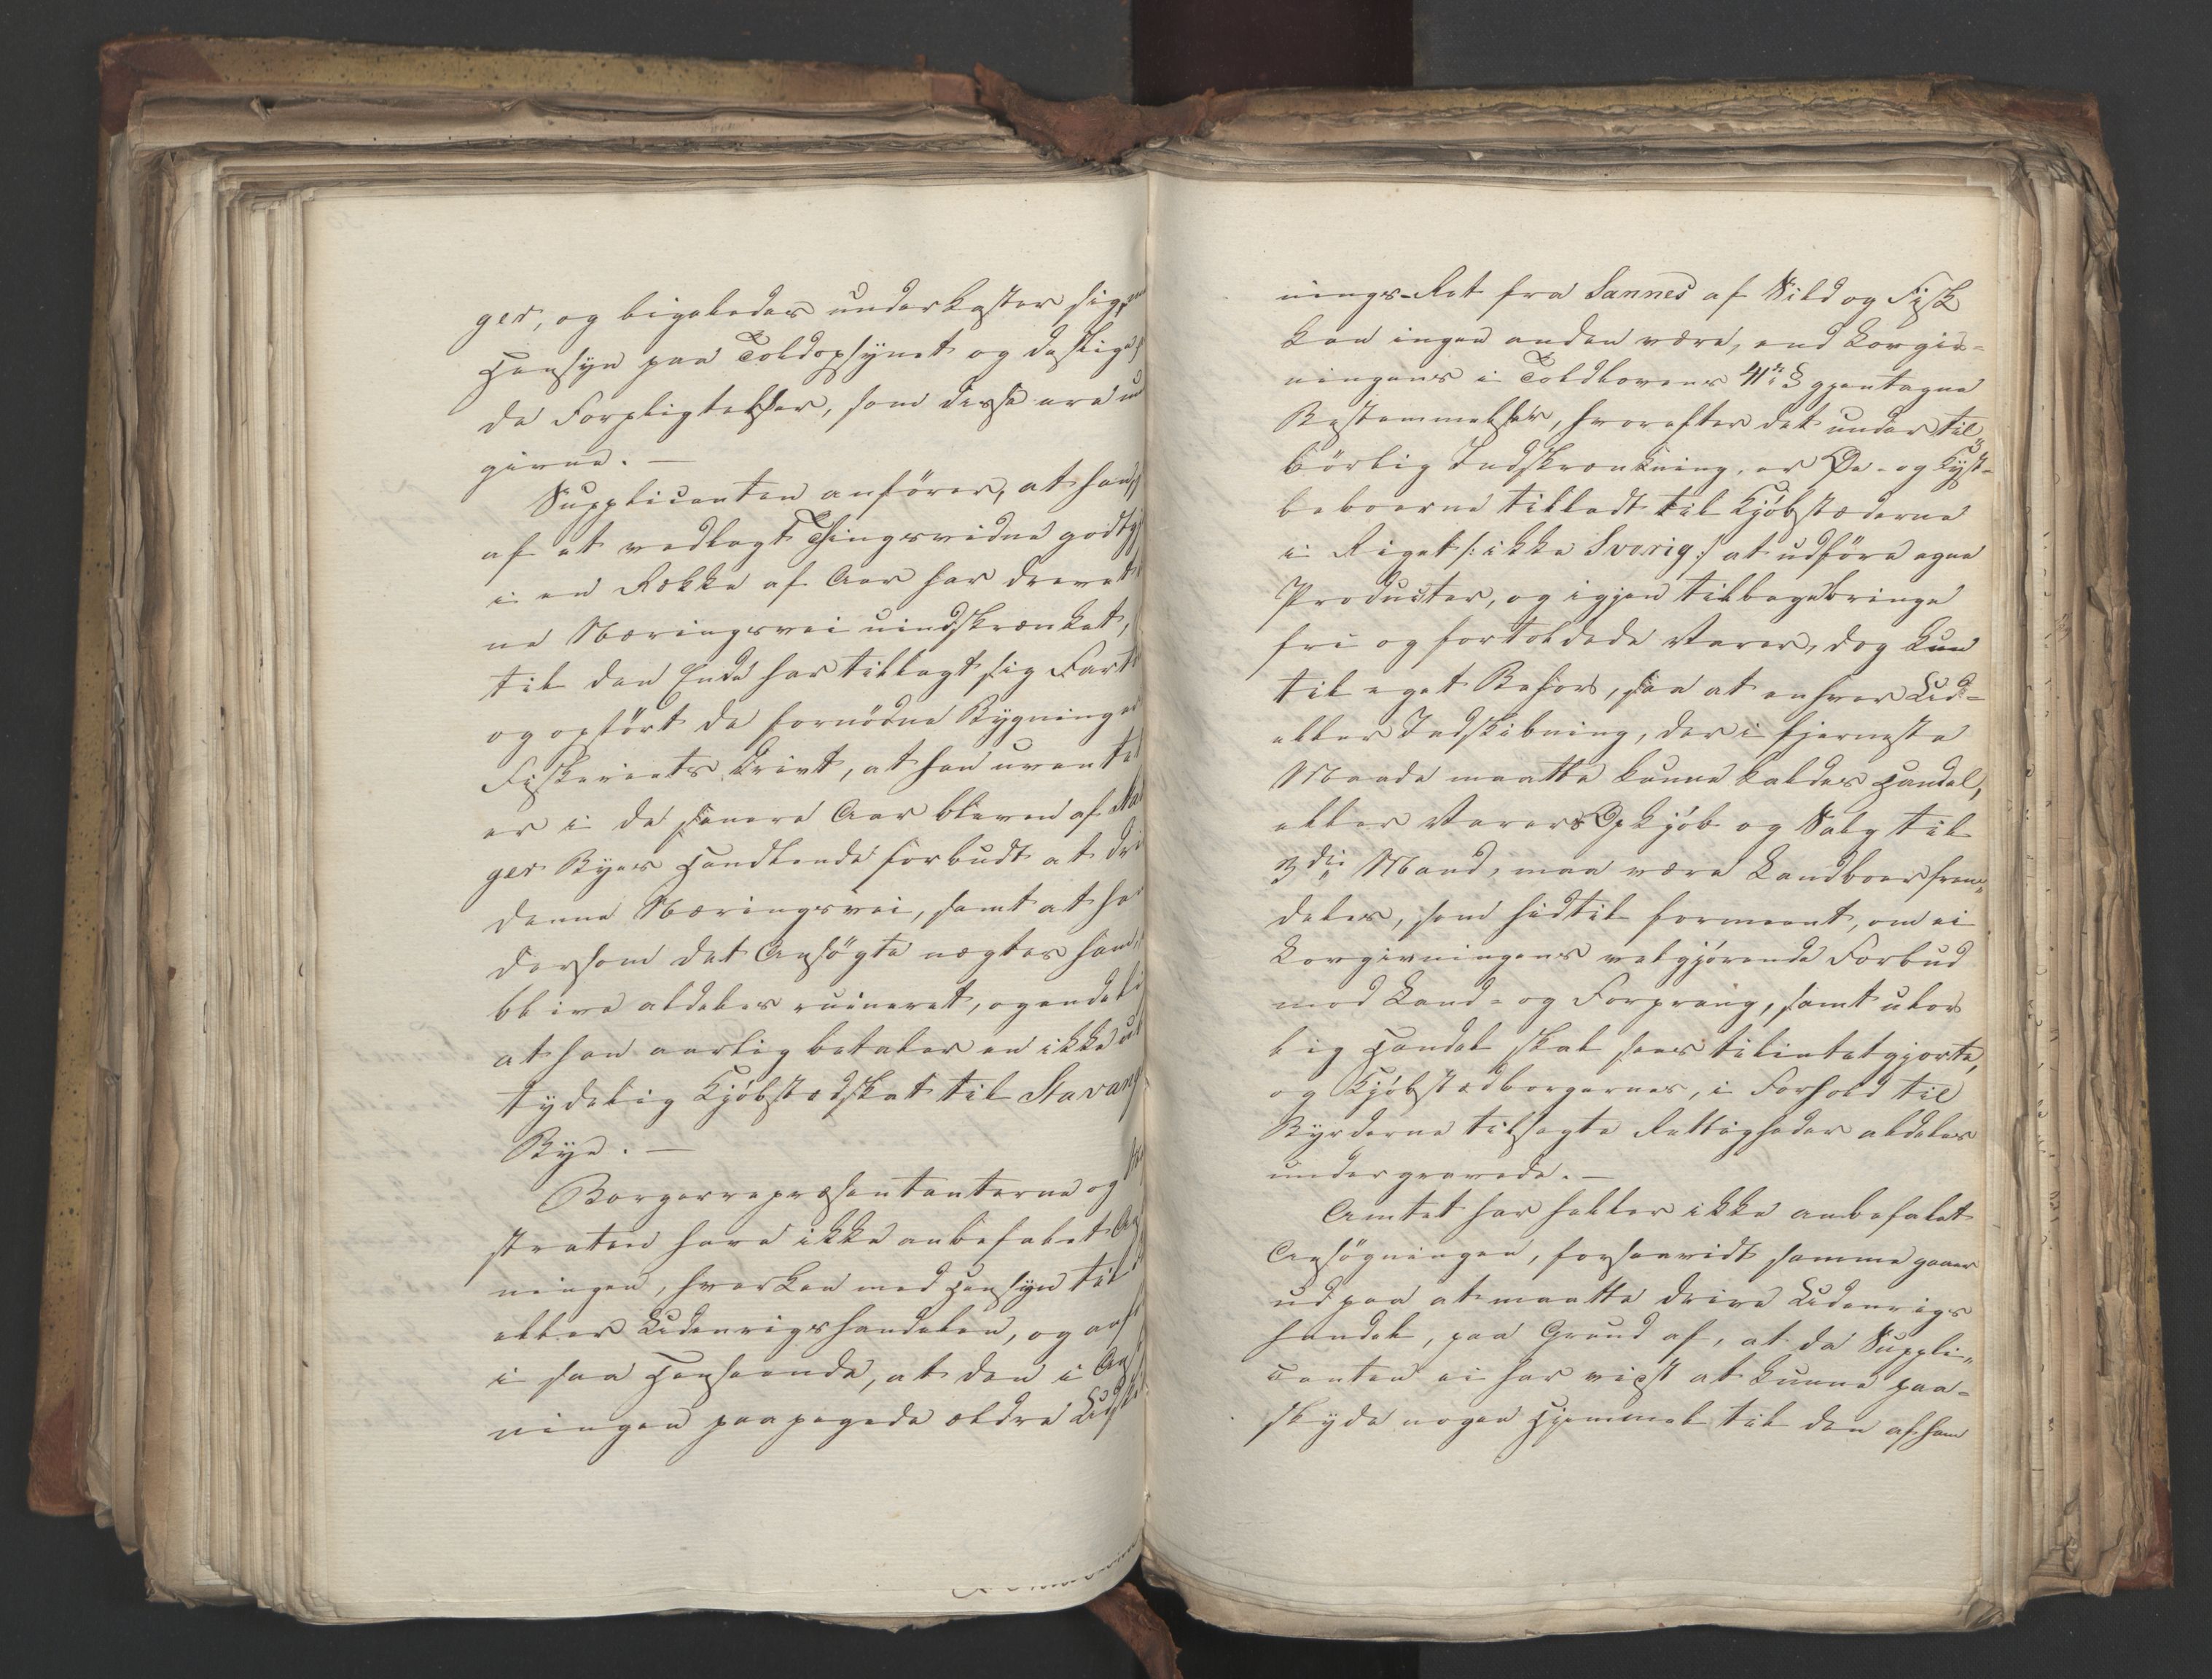 ger, og ligeledes underkaster sig, m
Hensyn paa Toldopsynet og deslige, 
de Forpligtelser, som disse ere un
givne. —
Supplicanten anfører, at han
af et vedlagt Thingsvidne godtgj
i en Række af Aar har drevet
ne Næringsvei uindskrænket,
til den Ende har tillagt sig Fart
og opført de fornødne Bygninger
Fiskeriets Drivt, at han uventet
er i de senere Aar bleven af Sta
ger Byes Handlende forbudt at dri
denne Næringsvei, samt at ha
dersom det Ansøgte nægtes ham,
blive aldeles ruineret, og endeli
at han aarlig betaler en ikke ub
tydelig Kjøbstedskat til Stavang
Bye. —
Borgerrepræsentanterne og
straten have ikke anbefalet An
ningen, hverken med Hensyn til
eller Udenrigshandelen, og anf
i saa Henseende, at den i Ans
ningen paapegede ældre Udski
nings-Ret fra Sannes af Sild og Fisk
kan ingen anden være, end Lovgiv-
ningens i Toldlovens 41de § gjentagne
Bestemmelser, hvorefter det under til„
børlig Indskrænkning, er Øe- og Kyst-
beboerne tilladt til Kjøbstæderne
i Riget /: ikke Sverig :/ at udføre egne
Producter, og igjen tilbagebringe
fri og fortoldede Varer, dog kun
til eget Behov, saa at enhver Ud-
eller Indskibning, der i fjerneste
Maade maatte kunne kaldes Handel,
eller Varers Opkjøb og Salg til
3die Mand, maa være Landboer frem„
deles, som hidtil formeent, om ei
Lovgivningens velgjørende Forbud
mod Land- og Forprang, samt ulov
lig Handel skal sees tilintetgjorte,
og Kjøbstædborgernes, i Forhold til
Byrderne tilsagte Rettigheder aldeles
undergravede. —
Amtet har heller ikke anbefalet
Ansøgningen, forsaavidt samme gaaer
ud paa at maatte drive Udenrigs
handel, paa Grund af, at da Suppli„
canten ei har viist at kunne paa-
skyde nogen Hjemmel til den af ham